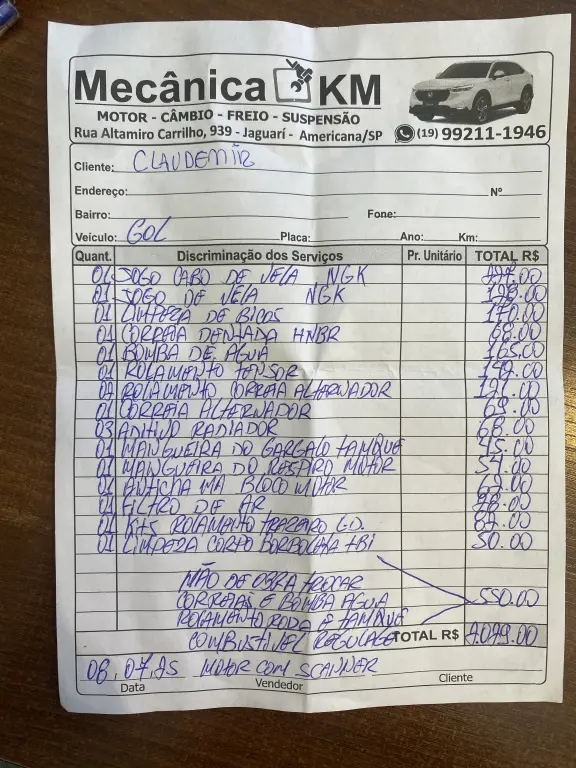 Mecânica KM
MOTOR - CÂMBIO - FREIO - SUSPENSÃO
Rua Altamiro Carrilho, 939 - Jaguarí - Americana/SP (19) 99211-1946
Cliente: CLAUDEMIR
Endereço: Nº
Bairro: Fone:
Veículo: GOL Placa: Ano: Km:
Quant. Discriminação dos Serviços Pr. Unitário TOTAL R$
01 JOGO CABO DE VELA NGK
01 JOGO DE VELA NGK
01 LIMPEZA DE BICOS 170.00
01 CORREIA DENTADA HNBR 68.00
01 BOMBA DE AGUA 165,00
01 ROLAMENTO TENSOR
01 ROLAMENTO CORREIA ALTERNADOR
01 CORREIA ALTERNADOR 69.00
03 ADITIVO RADIADOR 68.00
01 MANGUEIRA DO GARGALO TANQUE 45.00
01 MANGUEIRA DO RESPIRO MOTOR 54.00
01 BLOCO MOTOR
01 FILTRO DE AR
01 KITS ROLAMENTO TRAZEIRO L.D. 87.00
01 LIMPEZA CORPO BORBOLETA TBI 50.00
MÃO DE OBRA TROCAR
CORREIAS E BOMBA AGUA 550.00
ROLAMENTO RODA E TANQUE
COMBUSTIVEL REGULAGE TOTAL R$
08,07,25 MOTOR COM SCANNER
Data Vendedor Cliente